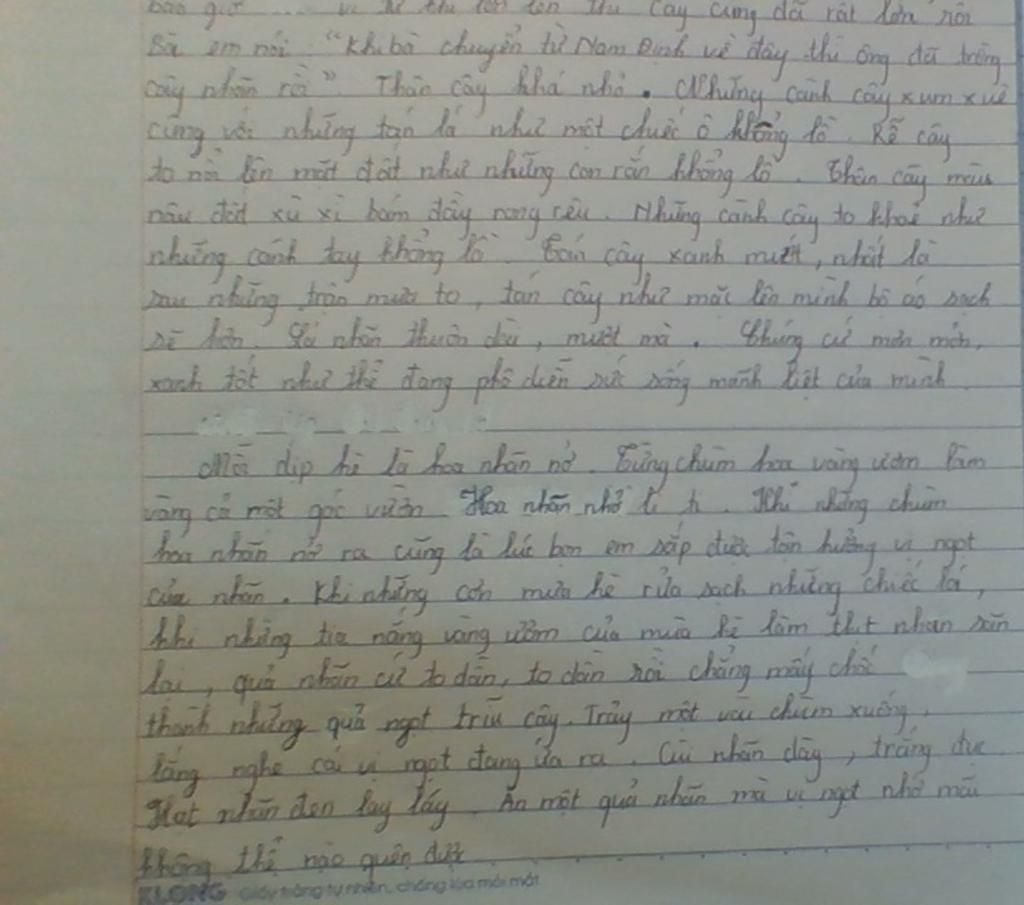 bao giờ vì thế thì lớn lên thì cây cũng đã rất lớn rồi
Bà em nói: "Khi bà chuyển từ Nam Định về đây thì ông đã trồng
cây nhãn rồi". Thân cây khá nhỏ. Những cành cây xum xuê
cùng với những tán lá như một chiếc ô khổng lồ. Rễ cây
to nổi lên mặt đất như những con rắn khổng lồ. Thân cây màu
nâu đất xù xì bám đầy rong rêu. Những cành cây to khoẻ như
những cánh tay khổng lồ. Tán cây xanh mướt, nhất là
sau những trận mưa to, tán cây như mặc lên mình bộ áo sạch
sẽ hơn. Lá nhãn thuôn dài, mượt mà. Chúng cứ mơn mởn,
xanh tốt như thể đang phô diễn sức sống mãnh liệt của mình.
Mỗi dịp hè là hoa nhãn nở. Từng chùm hoa vàng ươm làm
vàng cả một góc vườn. Hoa nhãn nhỏ li ti. Khi những chùm
hoa nhãn nở ra cũng là lúc bọn em sắp được tận hưởng vị ngọt
của nhãn. Khi những cơn mưa hè rửa sạch những chiếc lá,
khi những tia nắng vàng ươm của mùa hè làm thịt nhãn săn
lại, quả nhãn cứ to dần, to dần rồi chẳng mấy chốc
thành những quả ngọt trĩu cây. Trảy một vài chùm xuống,
lắng nghe cái vị ngọt đang ứa ra. Cùi nhãn dày, trắng đục.
Hạt nhãn đen lay láy. Ăn một quả nhãn mà vị ngọt nhớ mãi
không thể nào quên được.
KLONG Giấy trắng tự nhiên, chống lóa mỏi mắt